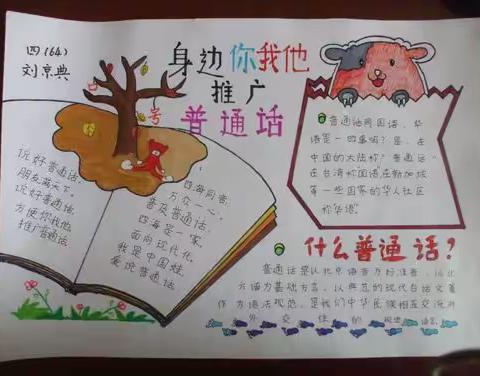 四(64)
刘京典
身边你我他
推广
普通话
说好普通话,
朋友满天下。
说好普通话,
方便你我他。
推广普通话
四海同音,
万众一心。
普及普通话,
四海是一家。
面向现代化,
我是中国娃,
爱说普通话。
普通话同国语、华
语是一回事吗?是,在
中国的大陆称"普通话",
在台湾称国语,在新加坡
等一些国家的华人社区
称华语。
什么普通话?
普通话是以北京语音为标准音,以北
方话为基础方言,以典范的现代白话文著
作为语法规范,是我们中华民族相互交流对
外交往的